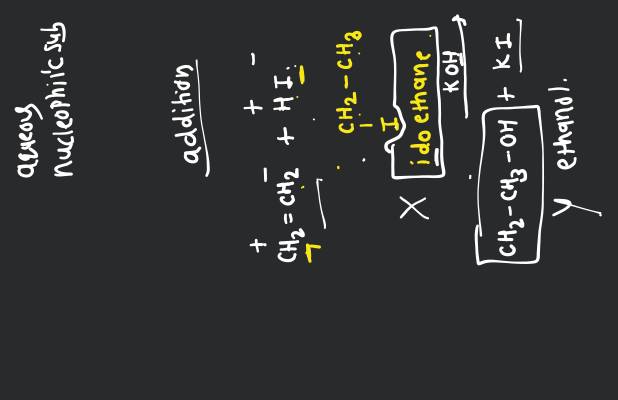 aqueous
nucleophilic sub
addition
+ − + −
CH2 = CH2 + HI
CH2 − CH3
I
X idoethane
KOH
CH2 − CH3 − OH + KI
Y ethanol.